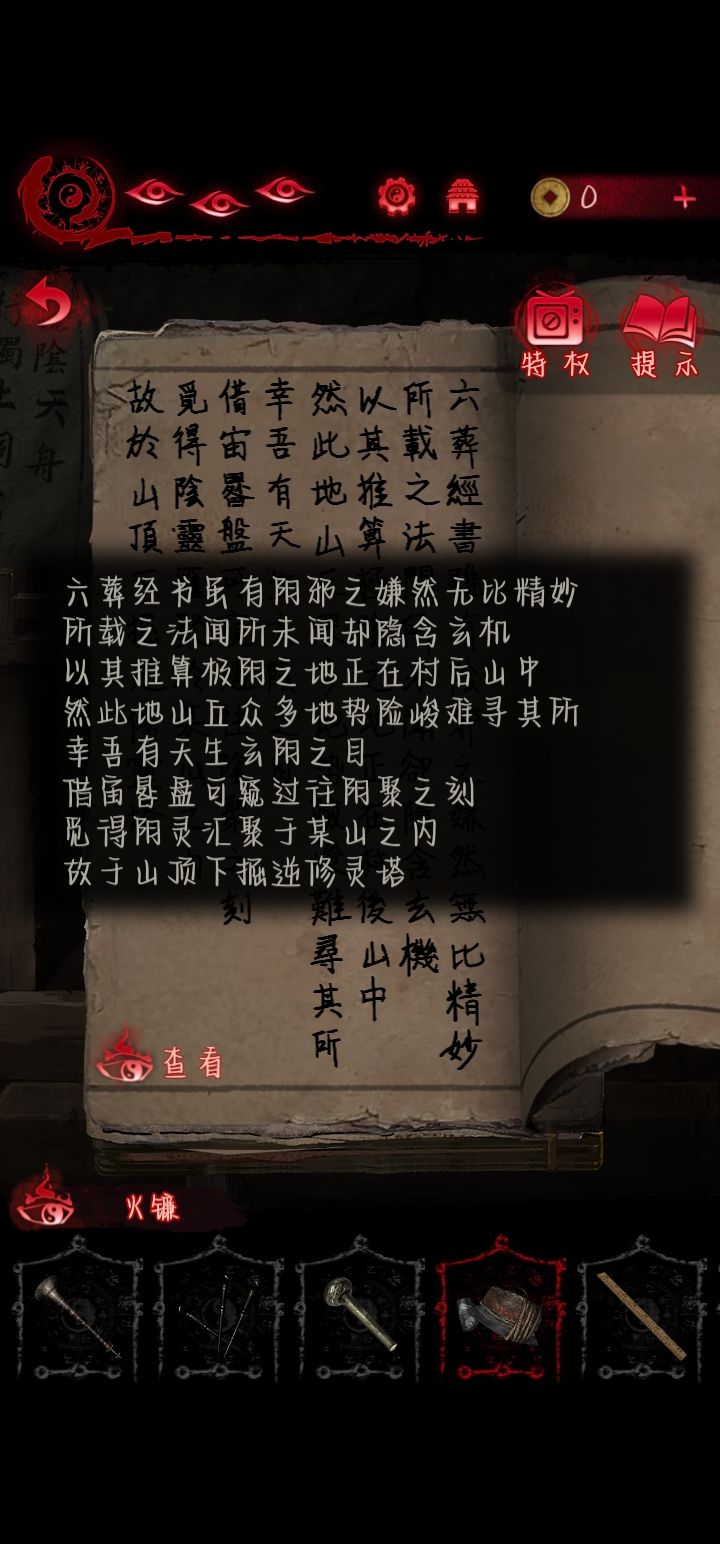 0
特权
提示
六葬經書
所載之法
以其推算
然此地山
幸吾有天
借宙晷盤
覓得陰靈
故於山頂
六葬经书虽有阴邪之嫌然无比精妙
所载之法闻所未闻却隐含玄机
以其推算极阴之地正在村后山中
然此地山丘众多地势险峻难寻其所
幸吾有天生玄阴之目
借宙晷盘可窥过往阴聚之刻
觅得阴灵汇聚于某山之内
故于山顶下掘逆修灵塔
然無比精妙
玄機
後山中
難尋其所
刻
查看
火镰